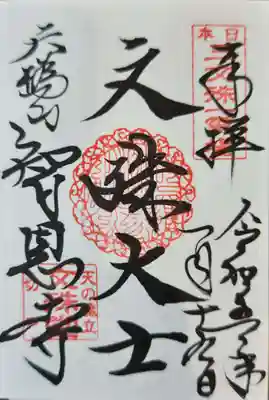 奉拝
令和五年
一月十 日
文殊大士
天橋山
智恩寺
日本三文殊
天の橋立
切戸文殊